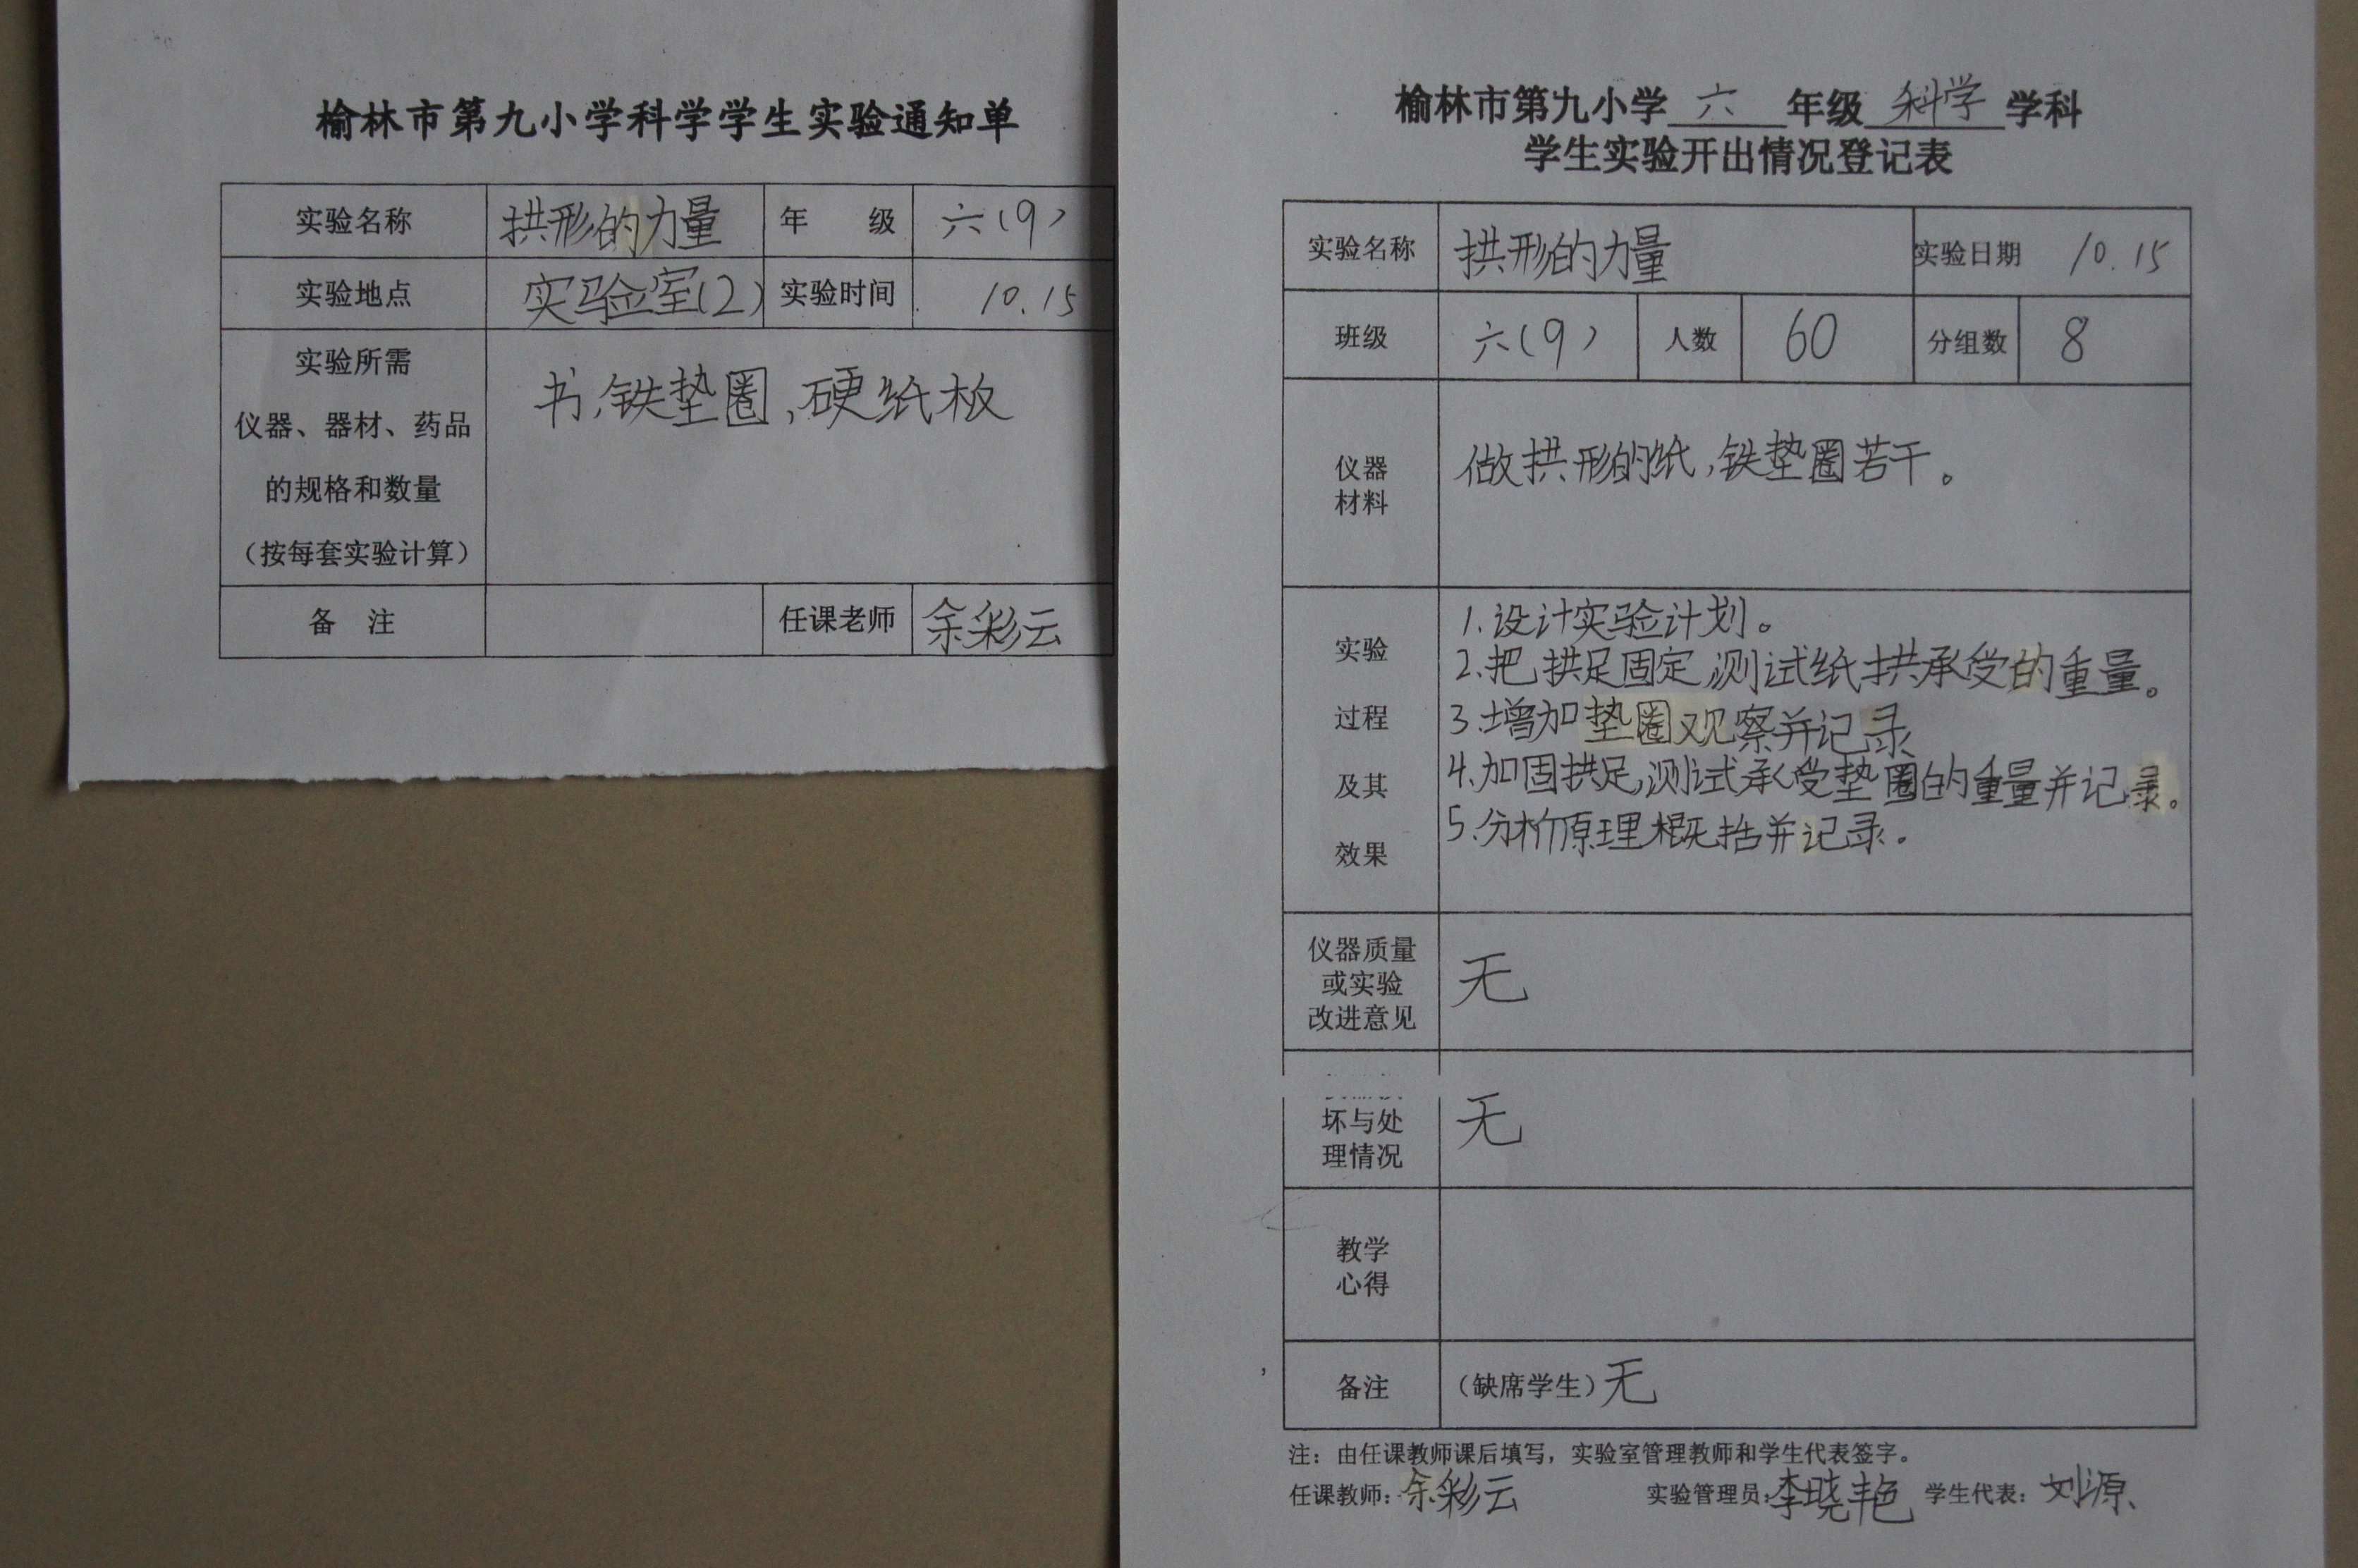 榆林市第九小学科学学生实验通知单
实验名称 拱形的力量 年 级 六(9)
实验地点 实验室(2) 实验时间 10.15
实验所需
仪器、器材、药品
的规格和数量
(按每套实验计算)
书,铁垫圈,硬纸板
备 注 任课老师 余彩云
榆林市第九小学 六 年级 科学 学科
学生实验开出情况登记表
实验名称 拱形的力量 实验日期 10.15
班级 六(9) 人数 60 分组数 8
仪器
材料
做拱形的纸,铁垫圈若干。
实验
过程
及其
效果
1.设计实验计划。
2.把拱足固定,测试纸拱承受的重量。
3.增加垫圈观察并记录
4.加固拱足,测试承受垫圈的重量并记录。
5.分析原理概括并记录。
仪器质量
或实验
改进意见
无
坏与处
理情况
无
教学
心得
备注 (缺席学生)无
注:由任课教师课后填写,实验室管理教师和学生代表签字。
任课教师:余彩云 实验管理员:李晓艳 学生代表:刘源